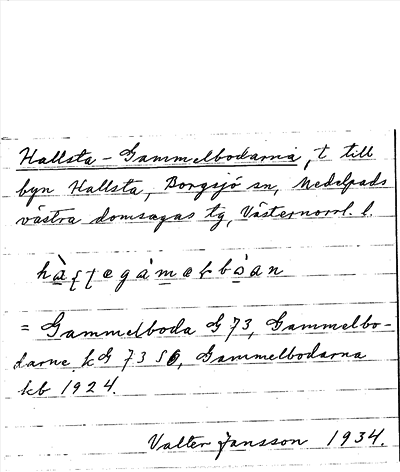 Hallsta-Gammelbodarna, t till
byn Hallsta, Borgsjö sn, Medelpads
västra domsagas tg, Västernorrl. l.
= Gammelboda G 73, Gammelbo-
darne kG 73 S6, Gammelbodarna
kb 1924.
Valter Jansson 1934.